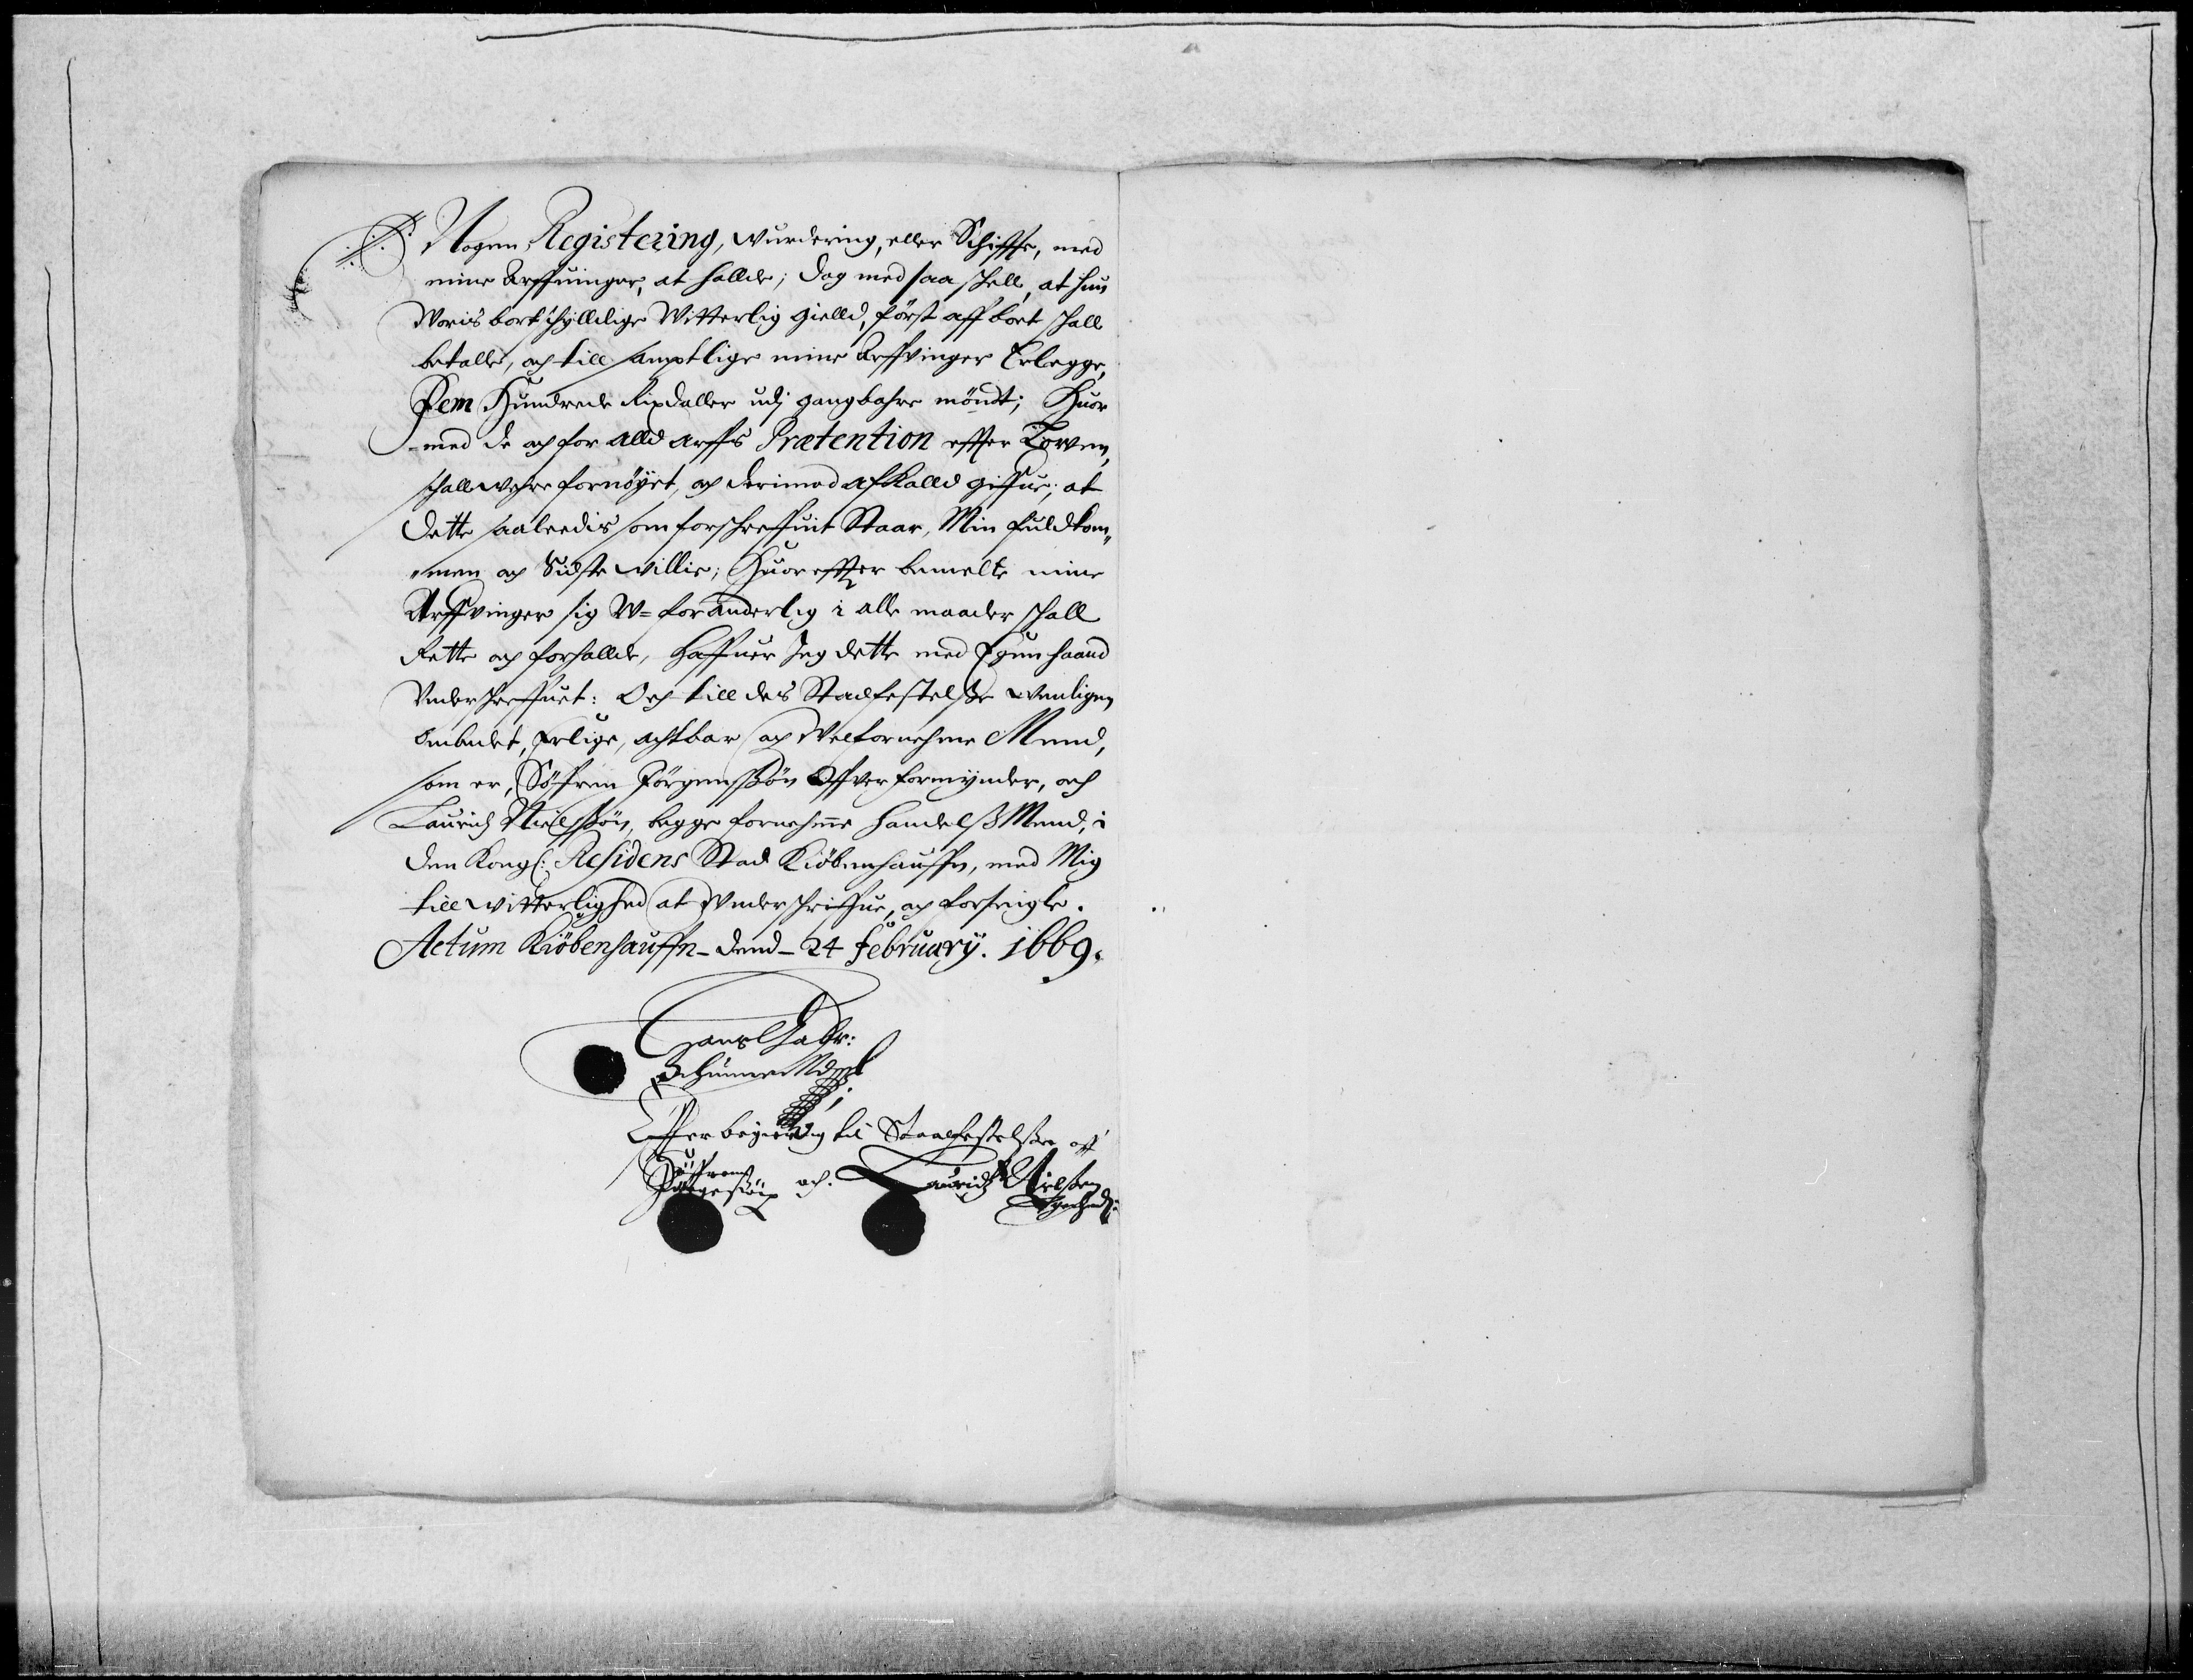 Nogen Registering, wurdering, eller Schiffte, med
mine Arffuinger, at hallde; dog med saa skell, at hun
Woris bortschylldige Witterlig gielld, først aff boet schall
betalle, och till samptlige mine Arffvinger Erlegge,
Fem Hundrede Rixdaller udj gangbahre möndt; Huor
med de och for alld arffs Prætention effter Lowen,
schall were fornöyet, och derimod afkalld giffue; at
dette saaledis som forschreffuit Staar, Min fuldkom„
„men och Sidste willie; Huor effter bemelte mine
Arffvinger sig W=foranderlig i alle maader schall
Rette och forhallde, haffuer Jeg dette med Egen haand
Underschreffuet: Och till des Stadfestelsse wenligen
ombedet, Erlige, achtbar och Welfornehme Mend,
som er, Söfren Jörgenssön Offverformynder, och
Lauridz Nielssön, begge fornehme Handelss Mend, i
den Kongl: Residens Stad Kiöbenhauffn, med Mig
till witterlighed at Underschriffue, och forseigle.
Actum Kiöbenhauffn - dend - 24 february. 1669.
Effter begiering til Stadfestelsse aff
Söffren
Jörgensön och. Lauridz Nielssen
Egenhand: